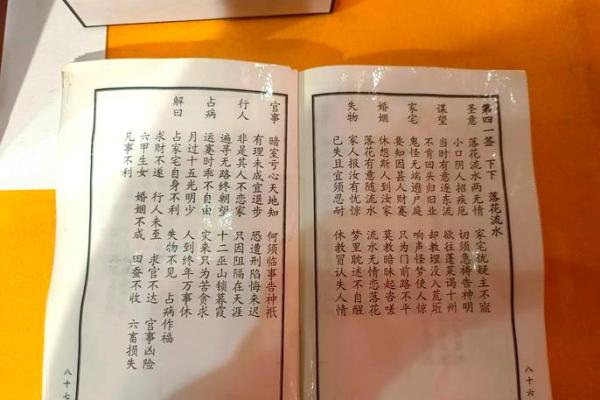 第四一签 下下 落花流水
圣意 落花流水两无情 家宅犹疑主不宁
小口阴人招疾厄 切须急祷告神明
谋望 当时有意逐东流 欲往蓬莱谒十州
不肯回头归旧业 却教埋没入荒坵
家宅 鬼怪无端遶户庭 响声怪梦使人惊
要知因县人财蹇 只为门前路不平
婚姻 休想斯人到汝家 莫教暗昧起咨嗟
落花有意随流水 流水无情恋落花
失物 家人报汝有忧惊 梦里耽迷不自醒
已失且宜须忍耐 休教冒认失人情
八十六
官事 暗室亏心天地知 何须临事告神祇
有理未成宜退步 恐遭刑陷悔来迟
行人 非是其人不恋家 只因阻隔在天涯
遍寻无路终朝望 十二巫山锁暮霞
占病 运蹇时乖不自由 灾来只为苦贪求
月过十五光明少 人到终年万事休
解曰 占家宅自身不利 失物不见 占病作福
求财不遂 行人未至 求官不达 官事凶险
六甲生女 婚姻不成 田蚕不收 六畜损失
凡事不利
八十七